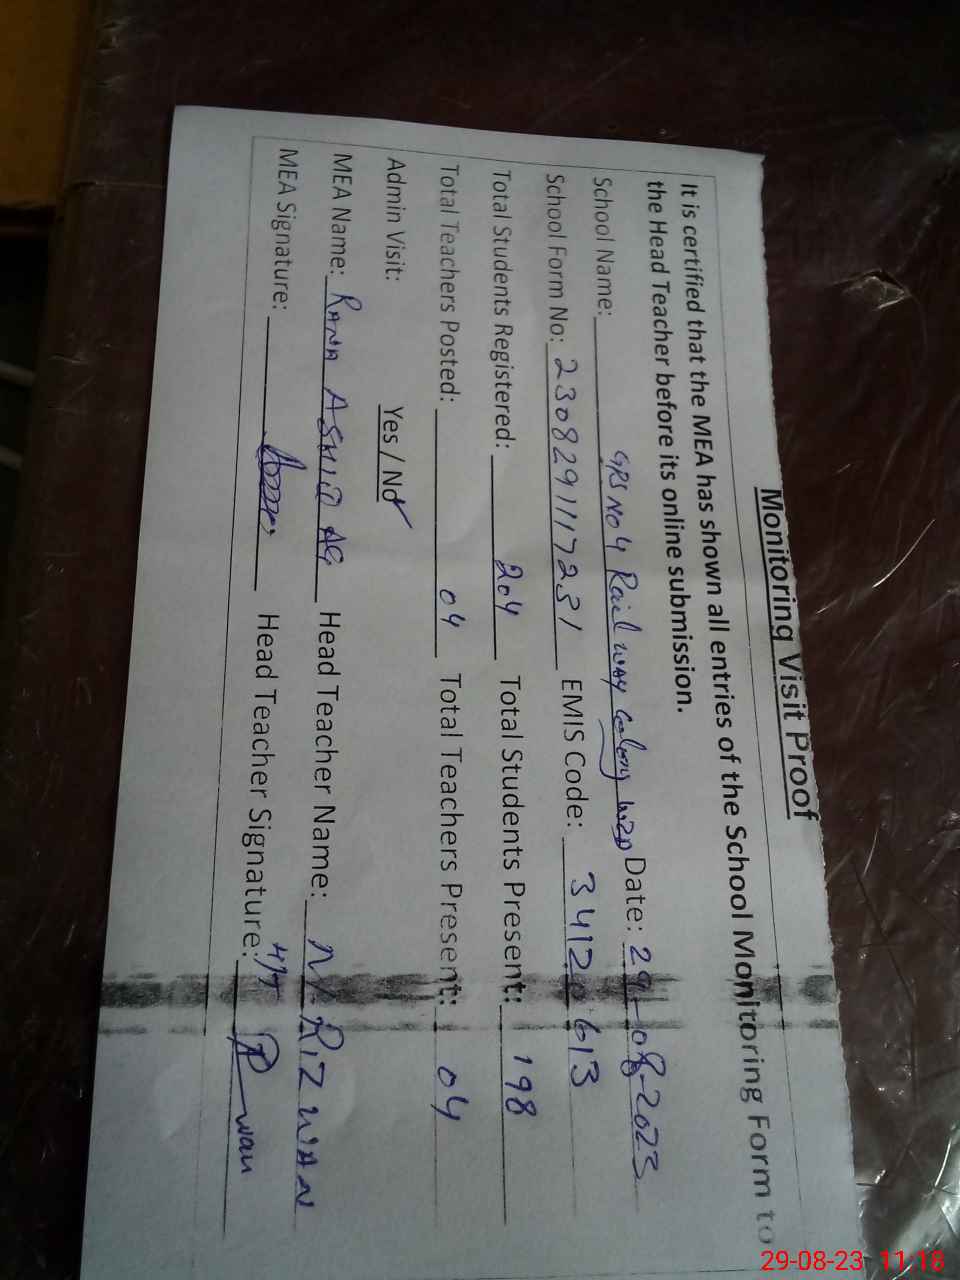 Monitoring Visit Proof
It is certified that the MEA has shown all entries of the School Monitoring Form to
the Head Teacher before its online submission.
School Name: GPS No 4 Railway Colony Date: 29-08-2023
School Form No: 230829111723/ EMIS Code: 34120613
Total Students Registered: 204 Total Students Present: 198
Total Teachers Posted: 04 Total Teachers Present: 04
Admin Visit: Yes / No
MEA Name: RANA Head Teacher Name: RIZWAN
MEA Signature: Head Teacher Signature:
29-08-23 11:18